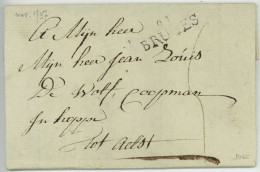 91
BRUGES
A Mijn heer
Mijn heer jean Louis
De Wolf, Coopman
In hoppe
tot Aelst